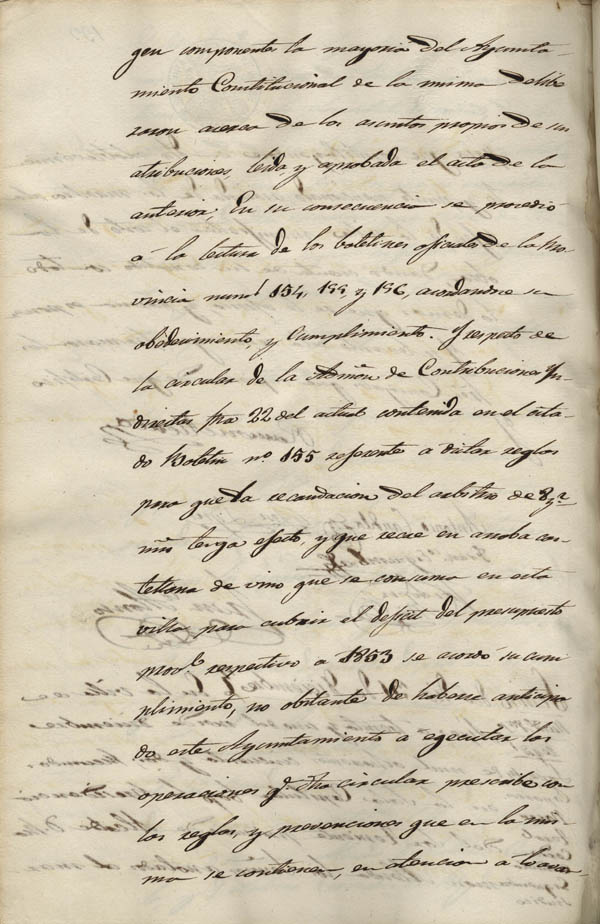 gen componentes la mayoria del Ayunta-
miento Constitucional de la misma delibe
raron acerca de los asuntos propios de sus
atribuciones, leida, y aprobada el acta de la
anterior. En su consecuencia se procedió
á la lectura de los boletines oficiales de la Pro-
vincia num.s 154, 155, y 156, acordandose su
obedecimiento, y cumplimiento. Y respecto de
la circular de la Admón de Contribuciones In-
directas fha 22 del actual contenida en el cita-
do Boletin nº 155 referente á dictar reglas
para que la recaudacion del arbitrio de 8
mrs tenga efecto, y que recae en arroba cas-
tellana de vino que se consuma en esta
villa para cubrir el deficit del presupuesto
prov.l respectivo a 1853 se acordó su cum-
plimiento, no obstante de haberse anticipa-
do este Ayuntamiento a egecutar las
operaciones q.e dha circular prescribe con
las reglas, y prevenciones que en la mis-
ma se contienen, en atencion a